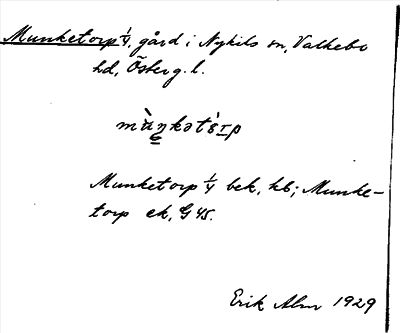 Munketorp 1/4, gård i Nykils sn, Valkebo
hd, Österg. l.
Munketorp 1/4 bek, kb; Munke-
torp ek, G 45.
Erik Alm 1929